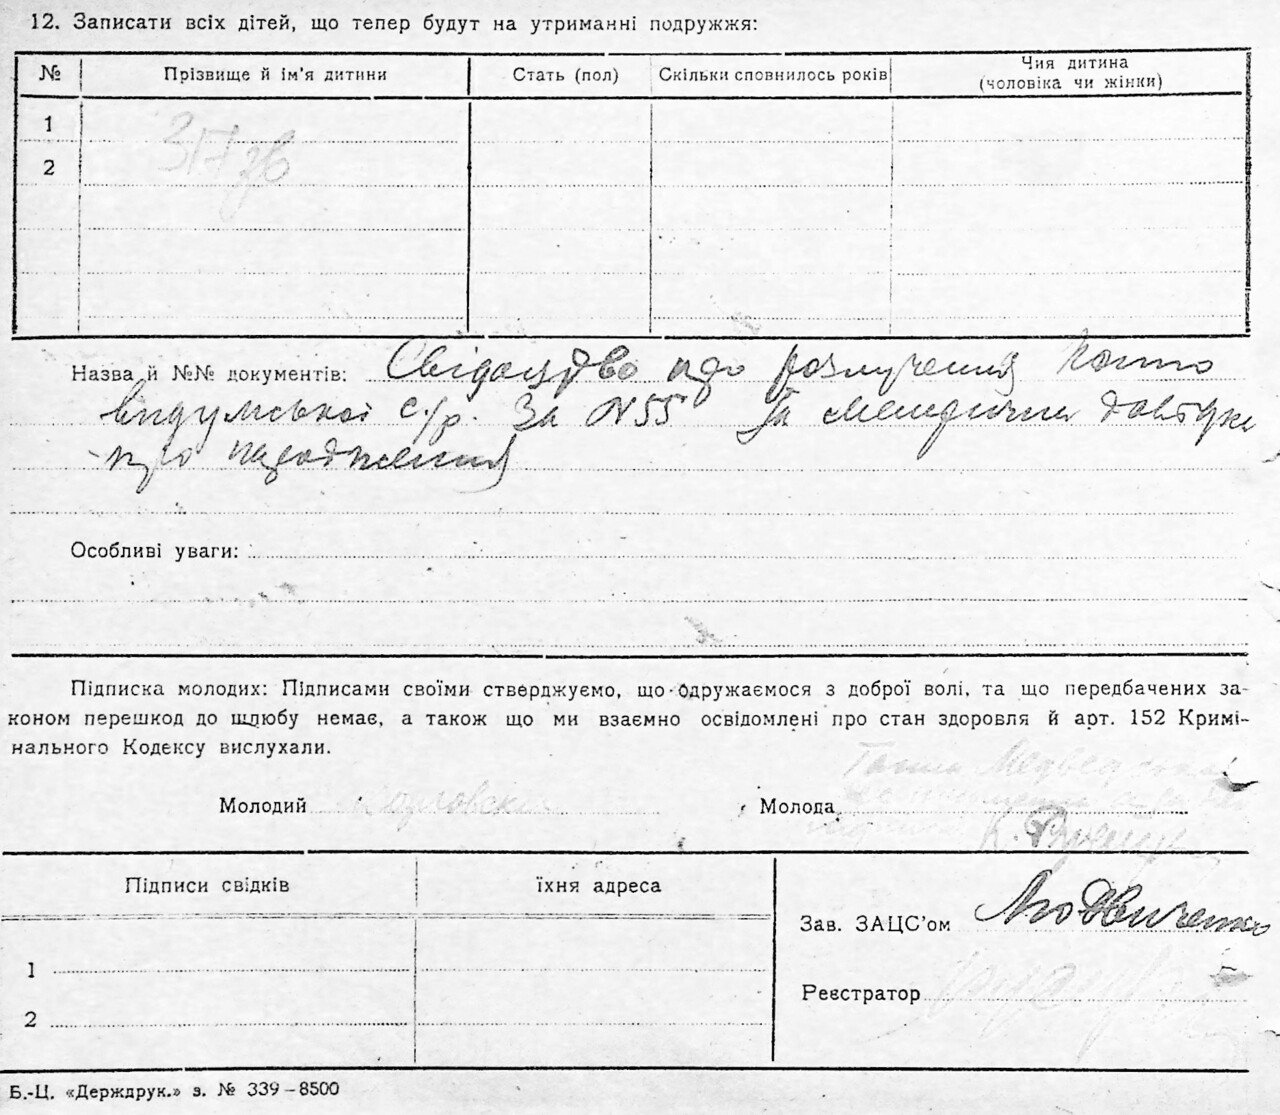 12. Записати всіх дітей, що тепер будут на утриманні подружжя:
№ Прізвище й ім'я дитини Стать (пол) Скільки сповнилось років Чия дитина
(чоловіка чи жінки)
1
2
317
Назва й №№ документів: Свідоцтво про розлучення
с/р. За №55 та метрична довідка
про народження
Особливі уваги:
Підписка молодих: Підписами своїми стверджуємо, що одружаємося з доброї волі, та що передбачених за-
коном перешкод до шлюбу немає, а також що ми взаємно освідомлені про стан здоровля й арт. 152 Кримі-
нального Кодексу вислухали.
Ганна
Молодий Молода
К.
Підписи свідків їхня адреса
Зав. ЗАЦС'ом
1
Реєстратор
2
Б.-Ц. «Держдрук.» з. № 339–8500